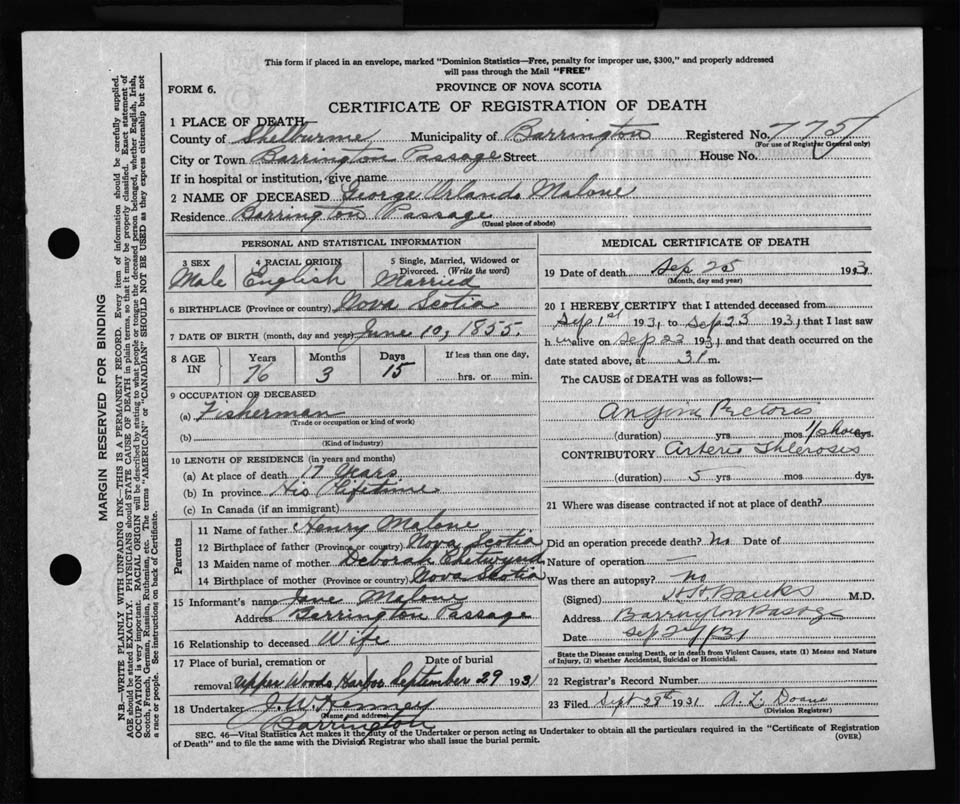 This form if placed in an envelope, marked "Dominion Statistics—Free, penalty for improper use, $300," and properly addressed
will pass through the Mail "FREE"
FORM 6.
PROVINCE OF NOVA SCOTIA
CERTIFICATE OF REGISTRATION OF DEATH
1 PLACE OF DEATH
County of Shelburne Municipality of Barrington Registered No. 775
(For use of Registrar General only)
City or Town Barrington Passage Street House No.
If in hospital or institution, give name
2 NAME OF DECEASED George Orlando Malone
Residence Barrington Passage
(Usual place of abode)
PERSONAL AND STATISTICAL INFORMATION
3 SEX 4 RACIAL ORIGIN 5 Single, Married, Widowed or
Divorced. (Write the word)
Male English Married
6 BIRTHPLACE (Province or country) Nova Scotia
7 DATE OF BIRTH (month, day and year) June 10, 1855.
8 AGE IN Years Months Days If less than one day,
76 3 15 hrs. or min.
9 OCCUPATION OF DECEASED
(a) Fisherman
(Trade or occupation or kind of work)
(b)
(Kind of industry)
10 LENGTH OF RESIDENCE (in years and months)
(a) At place of death 17 Years
(b) In province His Lifetime
(c) In Canada (if an immigrant)
Parents
11 Name of father Henry Malone
12 Birthplace of father (Province or country) Nova Scotia
13 Maiden name of mother Deborah Chetwynd
14 Birthplace of mother (Province or country) Nova Scotia
15 Informant's name Jane Malone
Address Barrington Passage
16 Relationship to deceased Wife
17 Place of burial, cremation or Date of burial
removal Upper Woods Harbor September 29 1931
18 Undertaker J. A. Kenney
(Name and address)
Barrington
MEDICAL CERTIFICATE OF DEATH
19 Date of death Sep 25 1931
(Month, day and year)
20 I HEREBY CERTIFY that I attended deceased from
Sep 1st 1931 to Sep 23 1931 that I last saw
h im alive on Sep 23 1931 and that death occurred on the
date stated above, at m.
The CAUSE of DEATH was as follows:
Angina Pectoris
(duration) yrs mos dys.
CONTRIBUTORY Arterio Shlerosis
(duration) 5 yrs mos dys.
21 Where was disease contracted if not at place of death?
Did an operation precede death? No Date of
Nature of operation —
Was there an autopsy? no
(Signed) Banks M.D.
Address Barrington Passage
Date Sep 27/31
State the Disease causing Death, or in death from Violent Causes, state (1) Means and Nature
of Injury, (2) whether Accidental, Suicidal or Homicidal.
22 Registrar's Record Number
23 Filed Sept 28th 1931 A. L. Doane
(Division Registrar)
SEC. 46—Vital Statistics Act makes it the duty of the Undertaker or person acting as Undertaker to obtain all the particulars required in the "Certificate of Registration
of Death" and to file the same with the Division Registrar who shall issue the burial permit.
(OVER)
MARGIN RESERVED FOR BINDING
N.B.—WRITE PLAINLY WITH UNFADING INK—THIS IS A PERMANENT RECORD. Every item of information should be carefully supplied.
AGE should be stated EXACTLY. PHYSICIANS should STATE CAUSE OF DEATH in plain terms, so that it may be properly classified. Exact statement of
OCCUPATION is very important. RACIAL ORIGIN will be described by stating to what people or tongue the deceased person belonged, whether English, Irish,
Scotch, French, German, Russian, Ruthenian, etc. The terms "AMERICAN" or "CANADIAN" SHOULD NOT BE USED as they express citizenship but not
a race or people. See instructions on back of Certificate.